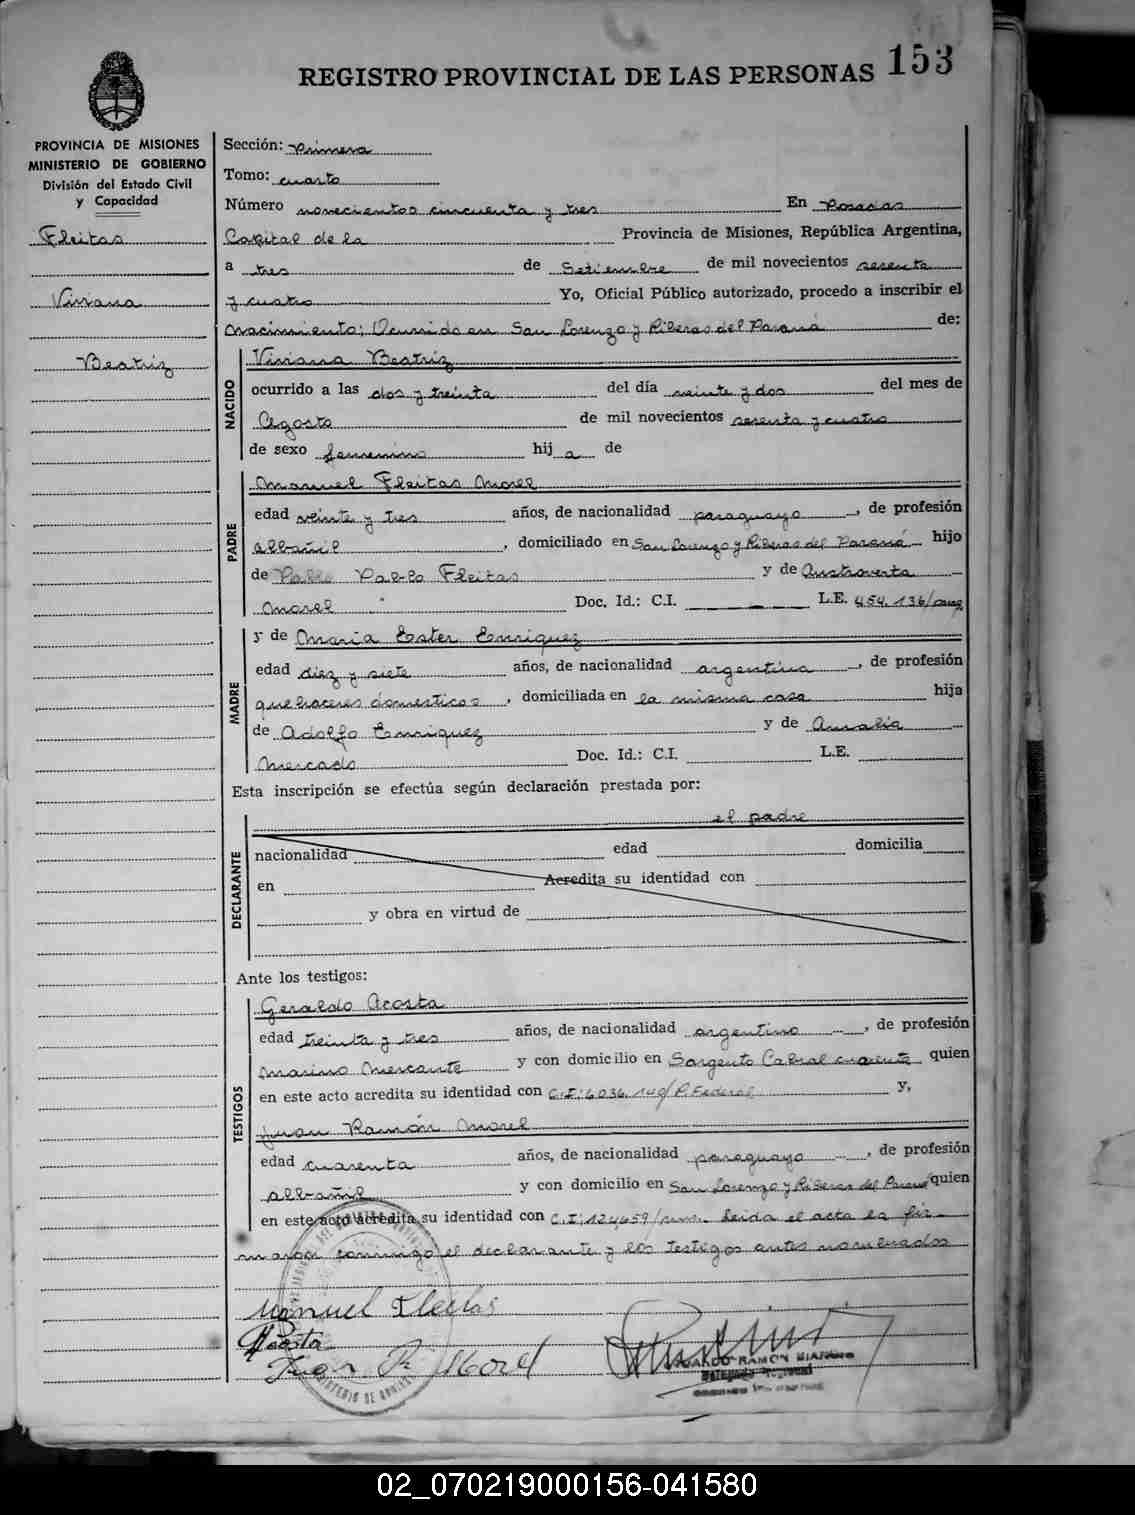 REGISTRO PROVINCIAL DE LAS PERSONAS 153
PROVINCIA DE MISIONES
MINISTERIO DE GOBIERNO
División del Estado Civil
y Capacidad
Fleitas
Viviana
Beatriz
Sección: Primera
Tomo: cuarto
Número novecientos cincuenta y tres En Posadas
Capital de la Provincia de Misiones, República Argentina,
a tres de Setiembre de mil novecientos sesenta
y cuatro Yo, Oficial Público autorizado, procedo a inscribir el
nacimiento; Ocurrido en San Lorenzo y Riberas del Paraná de:
NACIDO
Viviana Beatriz
ocurrido a las dos y treinta del día veinte y dos del mes de
Agosto de mil novecientos sesenta y cuatro
de sexo femenino hij a de
PADRE
Manuel Fleitas Morel
edad veinte y tres años, de nacionalidad paraguayo, de profesión
albañil, domiciliado en San Lorenzo y Riberas del Paraná hijo
de Pablo Fleitas y de
Morel Doc. Id.: C.I. L.E. 454.136/
MADRE
y de María Ester Enriquez
edad diez y siete años, de nacionalidad argentina, de profesión
quehaceres domesticos, domiciliada en la misma casa hija
de Adolfo Enriquez y de Amalia
Mercado Doc. Id.: C.I. L.E.
Esta inscripción se efectúa según declaración prestada por:
DECLARANTE
el padre
nacionalidad edad domicilia
en Acredita su identidad con
y obra en virtud de
Ante los testigos:
TESTIGOS
Geraldo Acosta
edad treinta y tres años, de nacionalidad argentino, de profesión
Marino Mercante y con domicilio en Sargento Cabral cuarenta quien
en este acto acredita su identidad con C.I: 6036.140/P.Federal y,
Juan Ramón Morel
edad cuarenta años, de nacionalidad paraguayo, de profesión
albañil y con domicilio en San Lorenzo y Riberas del Paraná quien
en este acto acredita su identidad con C.I: 124,659/ Leida el acta la fir-
man conmigo el declarante y los testigos antes nombrados
Manuel Fleitas
Acosta
Juan R Morel
02_070219000156-041580